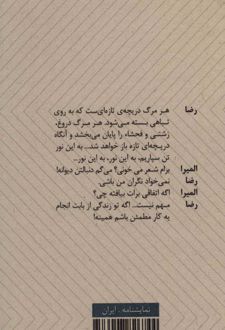 رضا هر مرگ دریچه‌ی تازه‌ای‌ست که به روی
تباهی بسته می‌شود. هر مرگ دروغ،
زشتی و فحشاء را پایان می‌بخشد و آنگاه
دریچه‌ای تازه باز خواهد شد... به این نور
تن سپاریم، به این نور، به این نور...
المیرا برام شعر می خونی؟ می‌گم دنبالتن دیوانه!
رضا نمی‌خواد نگران من باشی.
المیرا اگه اتفاقی برات بیافته چی؟
رضا مهم نیست... اگه تو زندگی از بابت انجام
یه کار مطمئن باشم همینه!
نمایشنامه - ایران